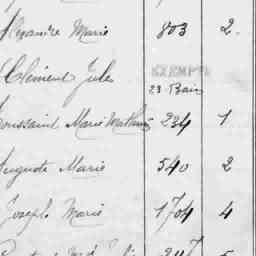 Alexandre Marie 803 2.
Clément Jules EXEMPTÉ
23 Bain
Toussaint Marie Mathurin 234 1
Auguste Marie 540 2
Joseph Marie 1704 4